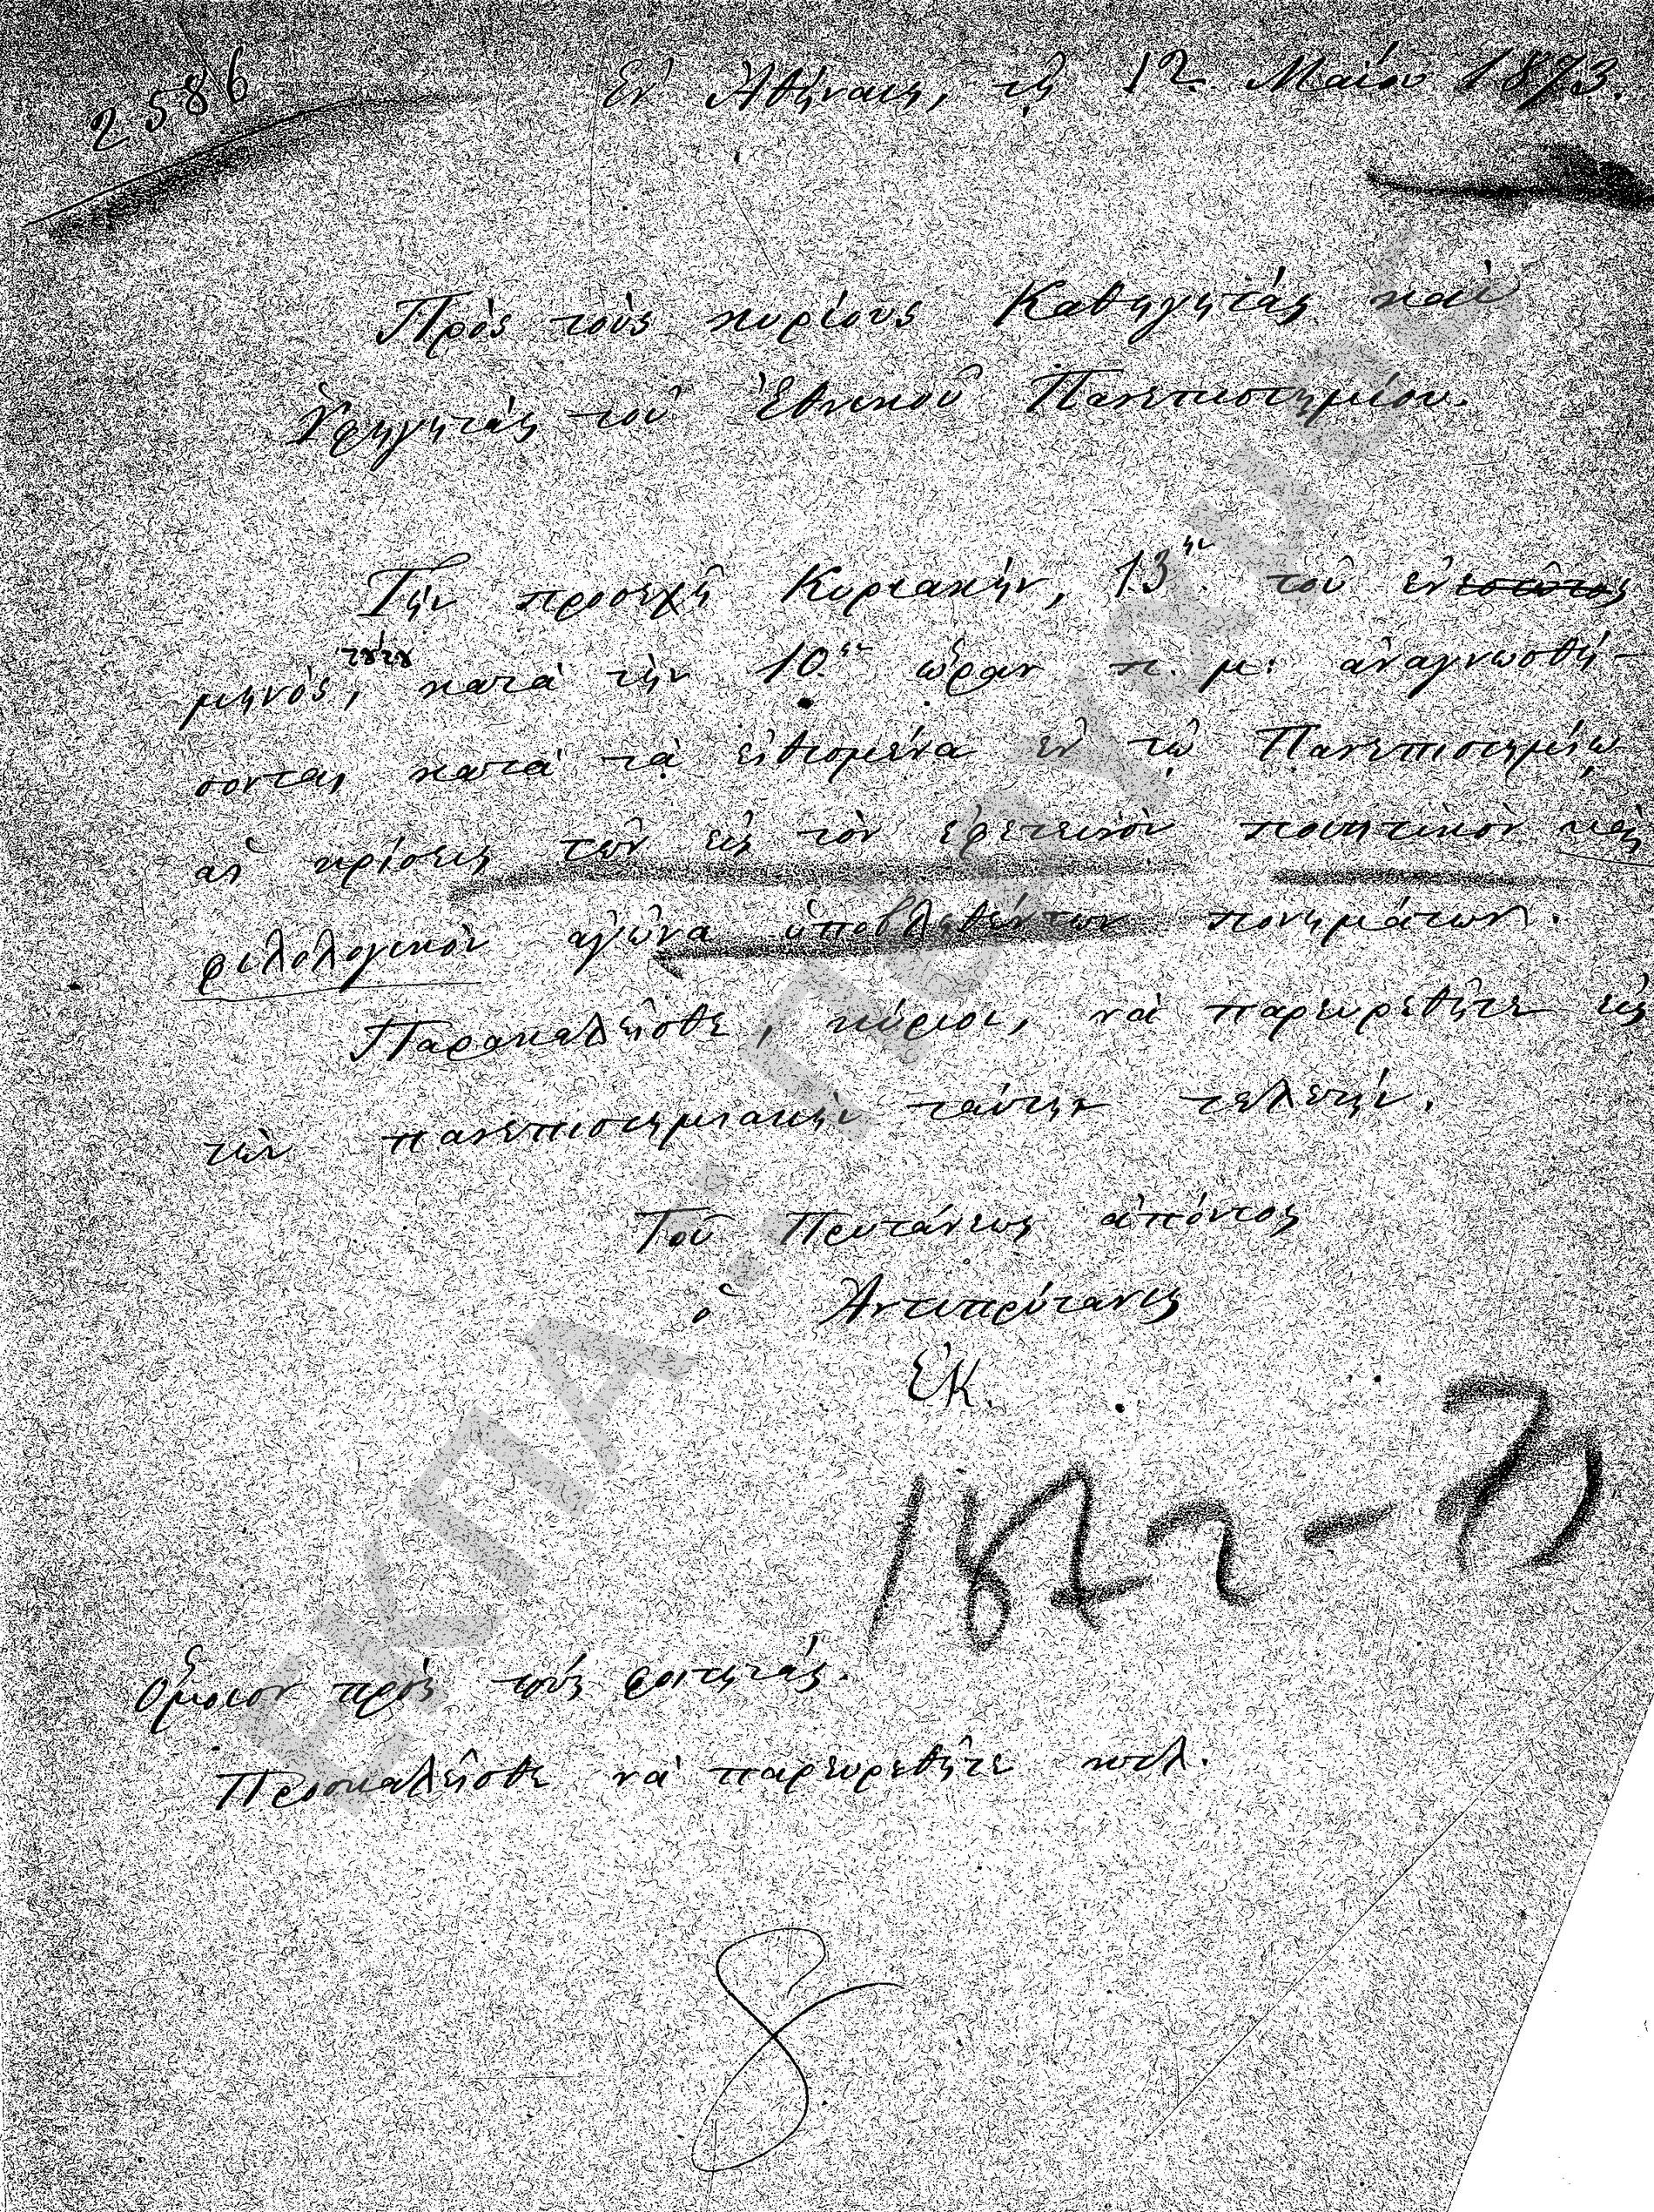 2586
Ἐν Ἀθήναις, τῇ 12 Μαΐου 1873.
Πρὸς τοὺς κυρίους Καθηγητὰς καὶ
Ὑφηγητὰς τοῦ Ἐθνικοῦ Πανεπιστημίου.
Τὴν προσεχῆ Κυριακὴν, 13ην τοῦ ἐνεστῶτος
τούτου
μηνὸς, κατὰ τὴν 10ην ὥραν π. μ. ἀναγνωσθή-
σονται κατὰ τὰ εἰθισμένα ἐν τῷ Πανεπιστημίῳ
αἱ κρίσεις τῶν εἰς τὸν ἐφετεινὸν ποιητικὸν καὶ
φιλολογικὸν ἀγῶνα ὑποβληθέντων πονημάτων.
Παρακαλεῖσθε, κύριοι, νὰ παρευρεθῆτε εἰς
τὴν πανεπιστημιακὴν ταύτην τελετήν.
Τοῦ Πρυτάνεως ἀπόντος
ὁ Ἀντιπρύτανις
ΕΚ.
1872-73
Ὅμοιον πρὸς τοὺς φοιτητάς.
Προσκαλεῖσθε νὰ παρευρεθῆτε κτλ.
8